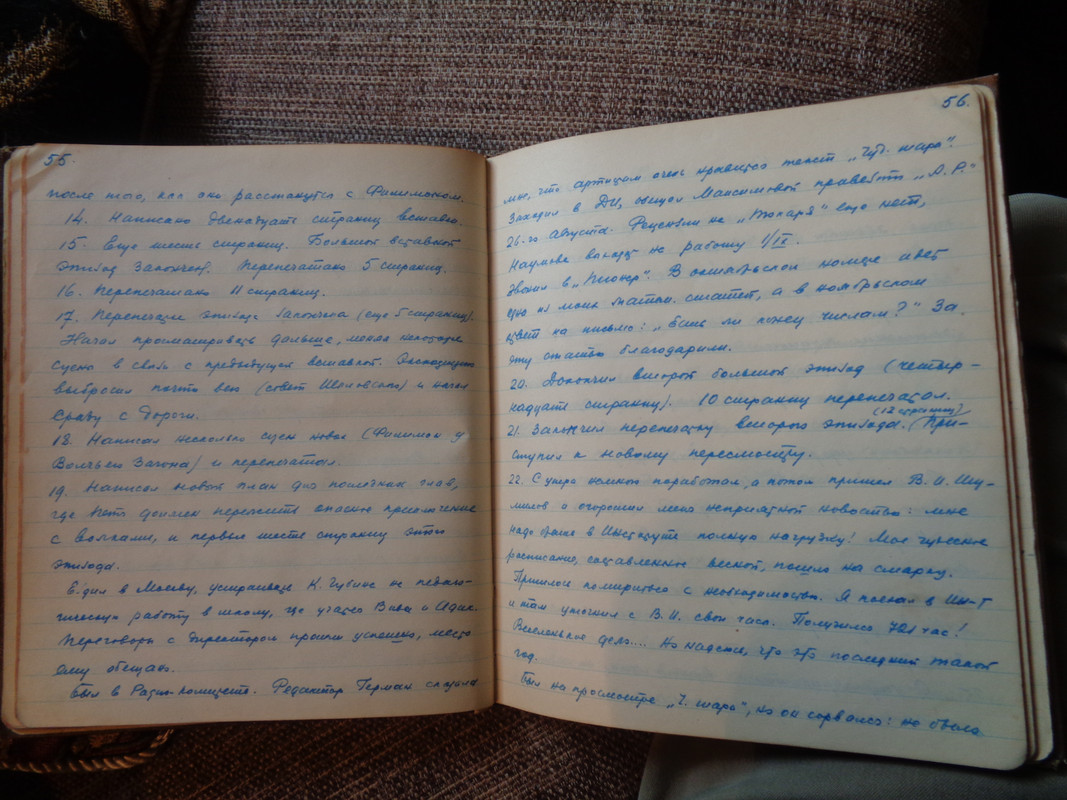 55.
после того, как они расстанутся с Финимоном.
14. Написано двенадцать страниц вставки.
15. Еще шесть страниц. Большой вставной
эпизод закончен. Перепечатано 5 страниц.
16. Перепечатано 11 страниц.
17. Перепечатка эпизода закончена (еще 5 страниц).
Начал просматривать дальше, меняя некоторые
сцены в связи с предыдущей вставкой. Экспозицию
выбросил почти всю (совет Шкловского) и начал
сразу с дороги.
18. Написал несколько сцен новых (Финимон у
Волчьего Загона) и перепечатал.
19. Написал новый план для последних глав,
где должен пережить опасное приключение
с волками, и первые шесть страниц этого
эпизода.
Ездил в Москву, устраивал К. Губина на педаго-
гическую работу в школу, где учатся Вива и Адик.
Переговоры с директором прошли успешно, место
ему обещано.
Был в Радио-комитете. Редактор Герман сказала
56.
мне, что артистам очень нравится текст „Чуд. шара".
Заходил в ДИ, обещал Максимовой править „А. Р."
26-го августа. Рецензии на „Токаря" еще нет,
Наумова выйдет на работу 1/IX.
Звонил в „Пионер". В октябрьском номере идет
одна из моих матем. статей, а в ноябрьском
ответ на письмо: „Есть ли конец числам?" За
эту статью благодарили.
20. Докончил второй большой эпизод (четыр-
надцать страниц). 10 страниц перепечатал.
(12 страниц)
21. Закончил перепечатку второго эпизода. При-
ступил к новому пересмотру.
22. С утра немного поработал, а потом пришел В. И. Шу-
милов и огорошил меня неприятной новостью: мне
надо взять в Институте полную нагрузку! Мое чудесное
расписание, составленное весной, пошло на смарку.
Пришлось помириться с необходимостью. Я поехал в Ин-т
и там уточнил с В. И. свои часы. Получилось 721 час!
Веселенькое дело.... Но надеюсь, что это последний такой
год.
Был на просмотре „Ч. шара", но он сорвался: не было